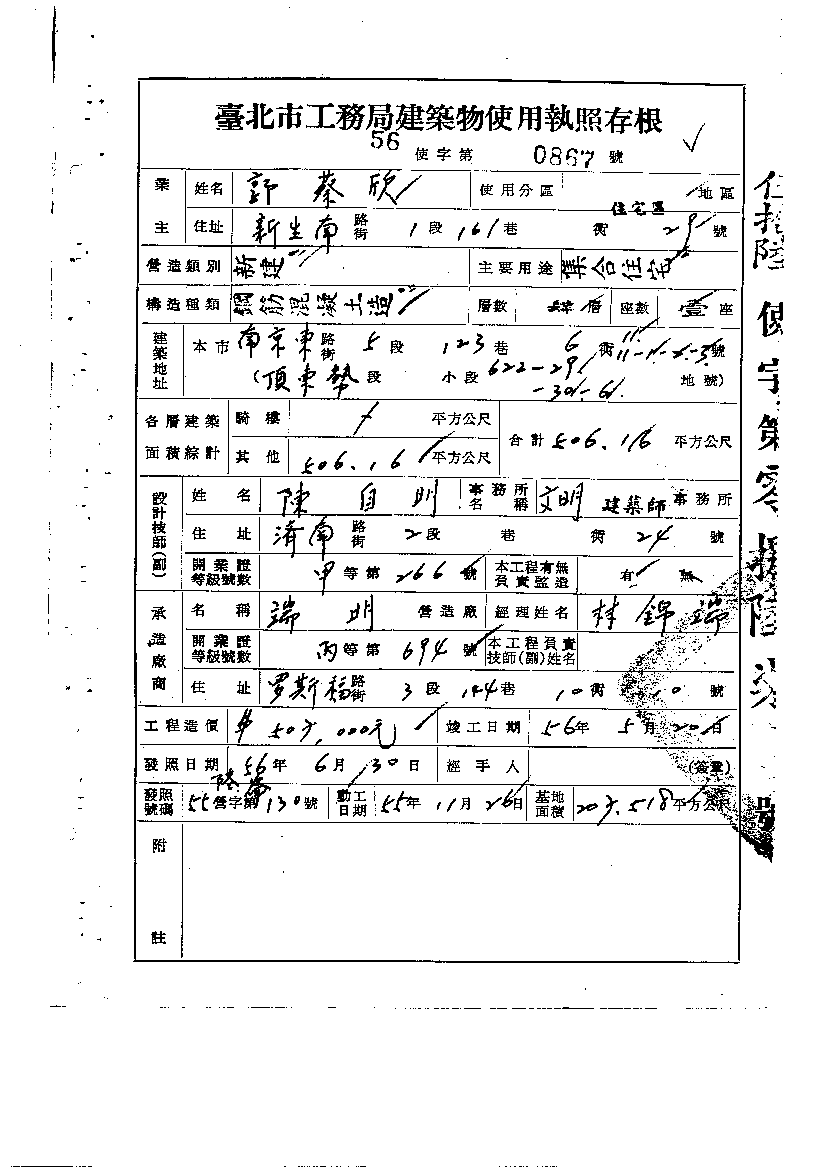 臺北市工務局建築物使用執照存根
56 使字第 0867 號
業主 姓名 郭蔡欣 使用分區 住宅區 地區
住址 新生南路街 1段 161巷 衖 29號
營造類別 新建 主要用途 集合住宅
構造種類 鋼筋混凝土造 層數 層 座數 壹座
建築地址 本市 南京東路街 5段 123巷 6衖 號
(頂東勢段 小段 622-29 -30-61 地號)
各層建築面積綜計 騎樓 平方公尺 合計 506.16 平方公尺
其他 506.16 平方公尺
設計技師(副) 姓名 陳自明 事務所名稱 文明 建築師事務所
住址 濟南路街 2段 巷 衖 24號
開業證等級號數 甲等第 266號 本工程有無負責監造 有 無
承造廠商 名稱 瑞明 營造廠 經理姓名 林錦瑞
開業證等級號數 丙等第 694號 本工程負責技師(副)姓名
住址 罗斯福路街 3段 144巷 10衖 10號
工程造價 ,000元 竣工日期 56年 5月 20日
發照日期 56年 6月 30日 經手人 (簽章)
發照號碼 55營字第130號 動工日期 55年 11月 26日 基地面積 .518平方公尺
附註
伍拾陸使字第零捌陸 號